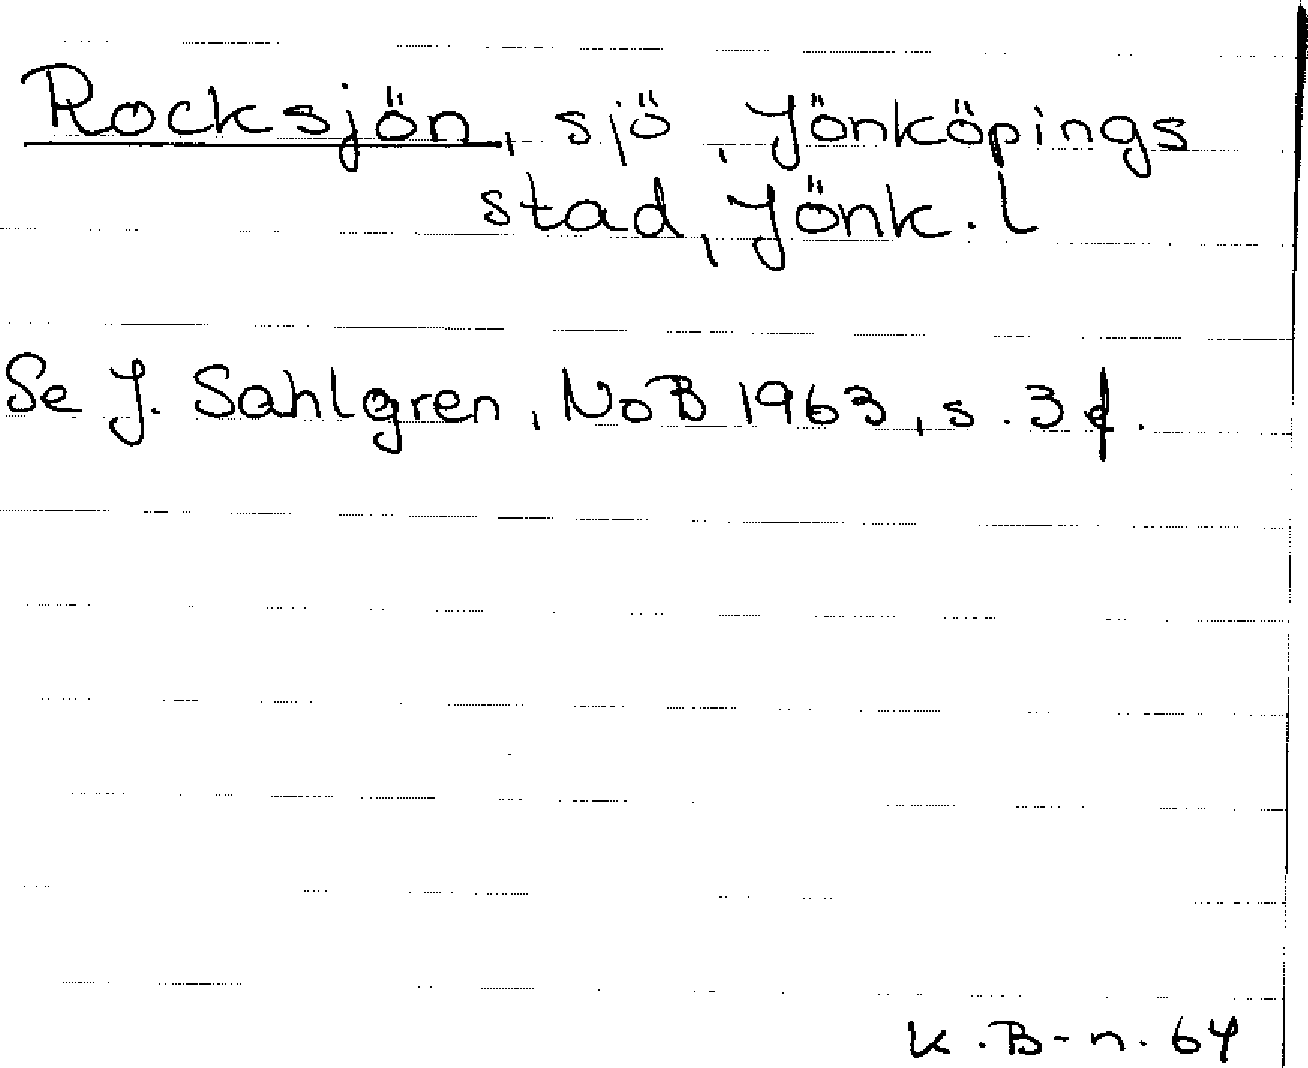 Rocksjön, sjö, Jönköpings
stad, Jönk. l
Se J. Sahlgren, NoB 1963, s. 3 f.
K. B-n. 64